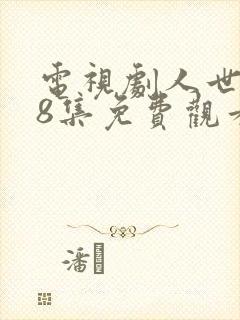 電視劇人世
8集免費觀看
潘